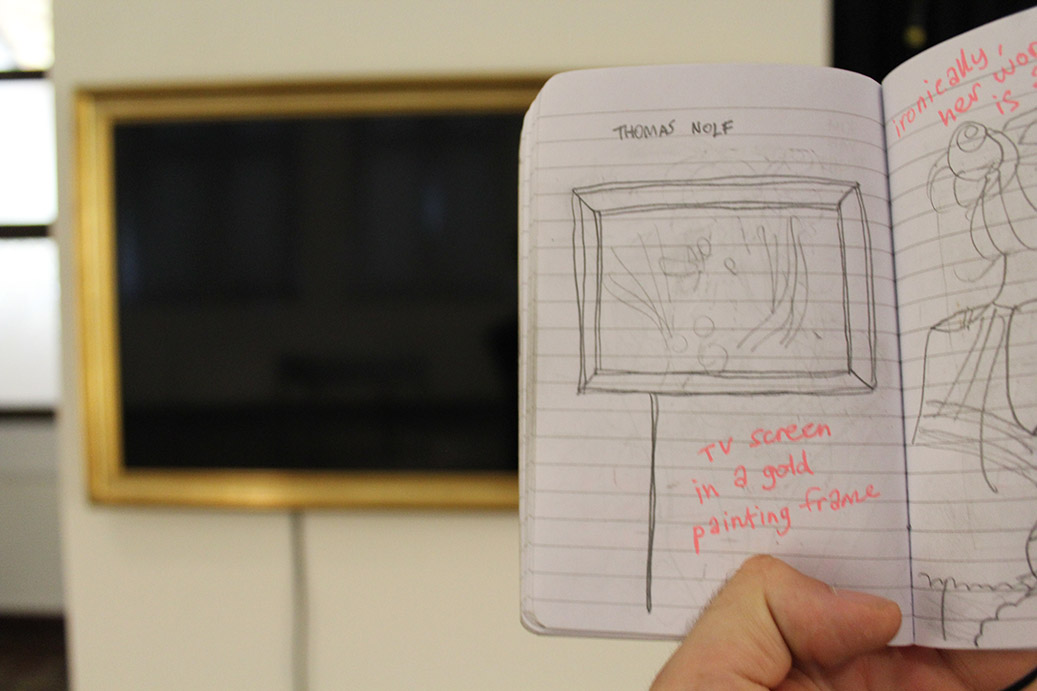 THOMAS NOLF
TV screen
in a gold
painting frame
ironically,
her wor
is